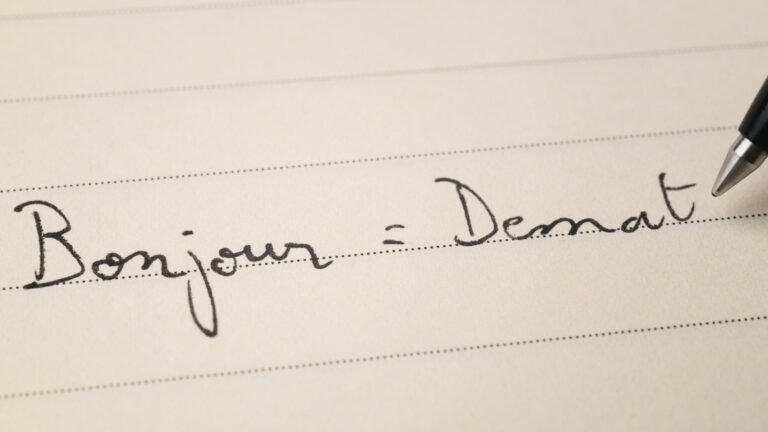 Bonjour = Demat